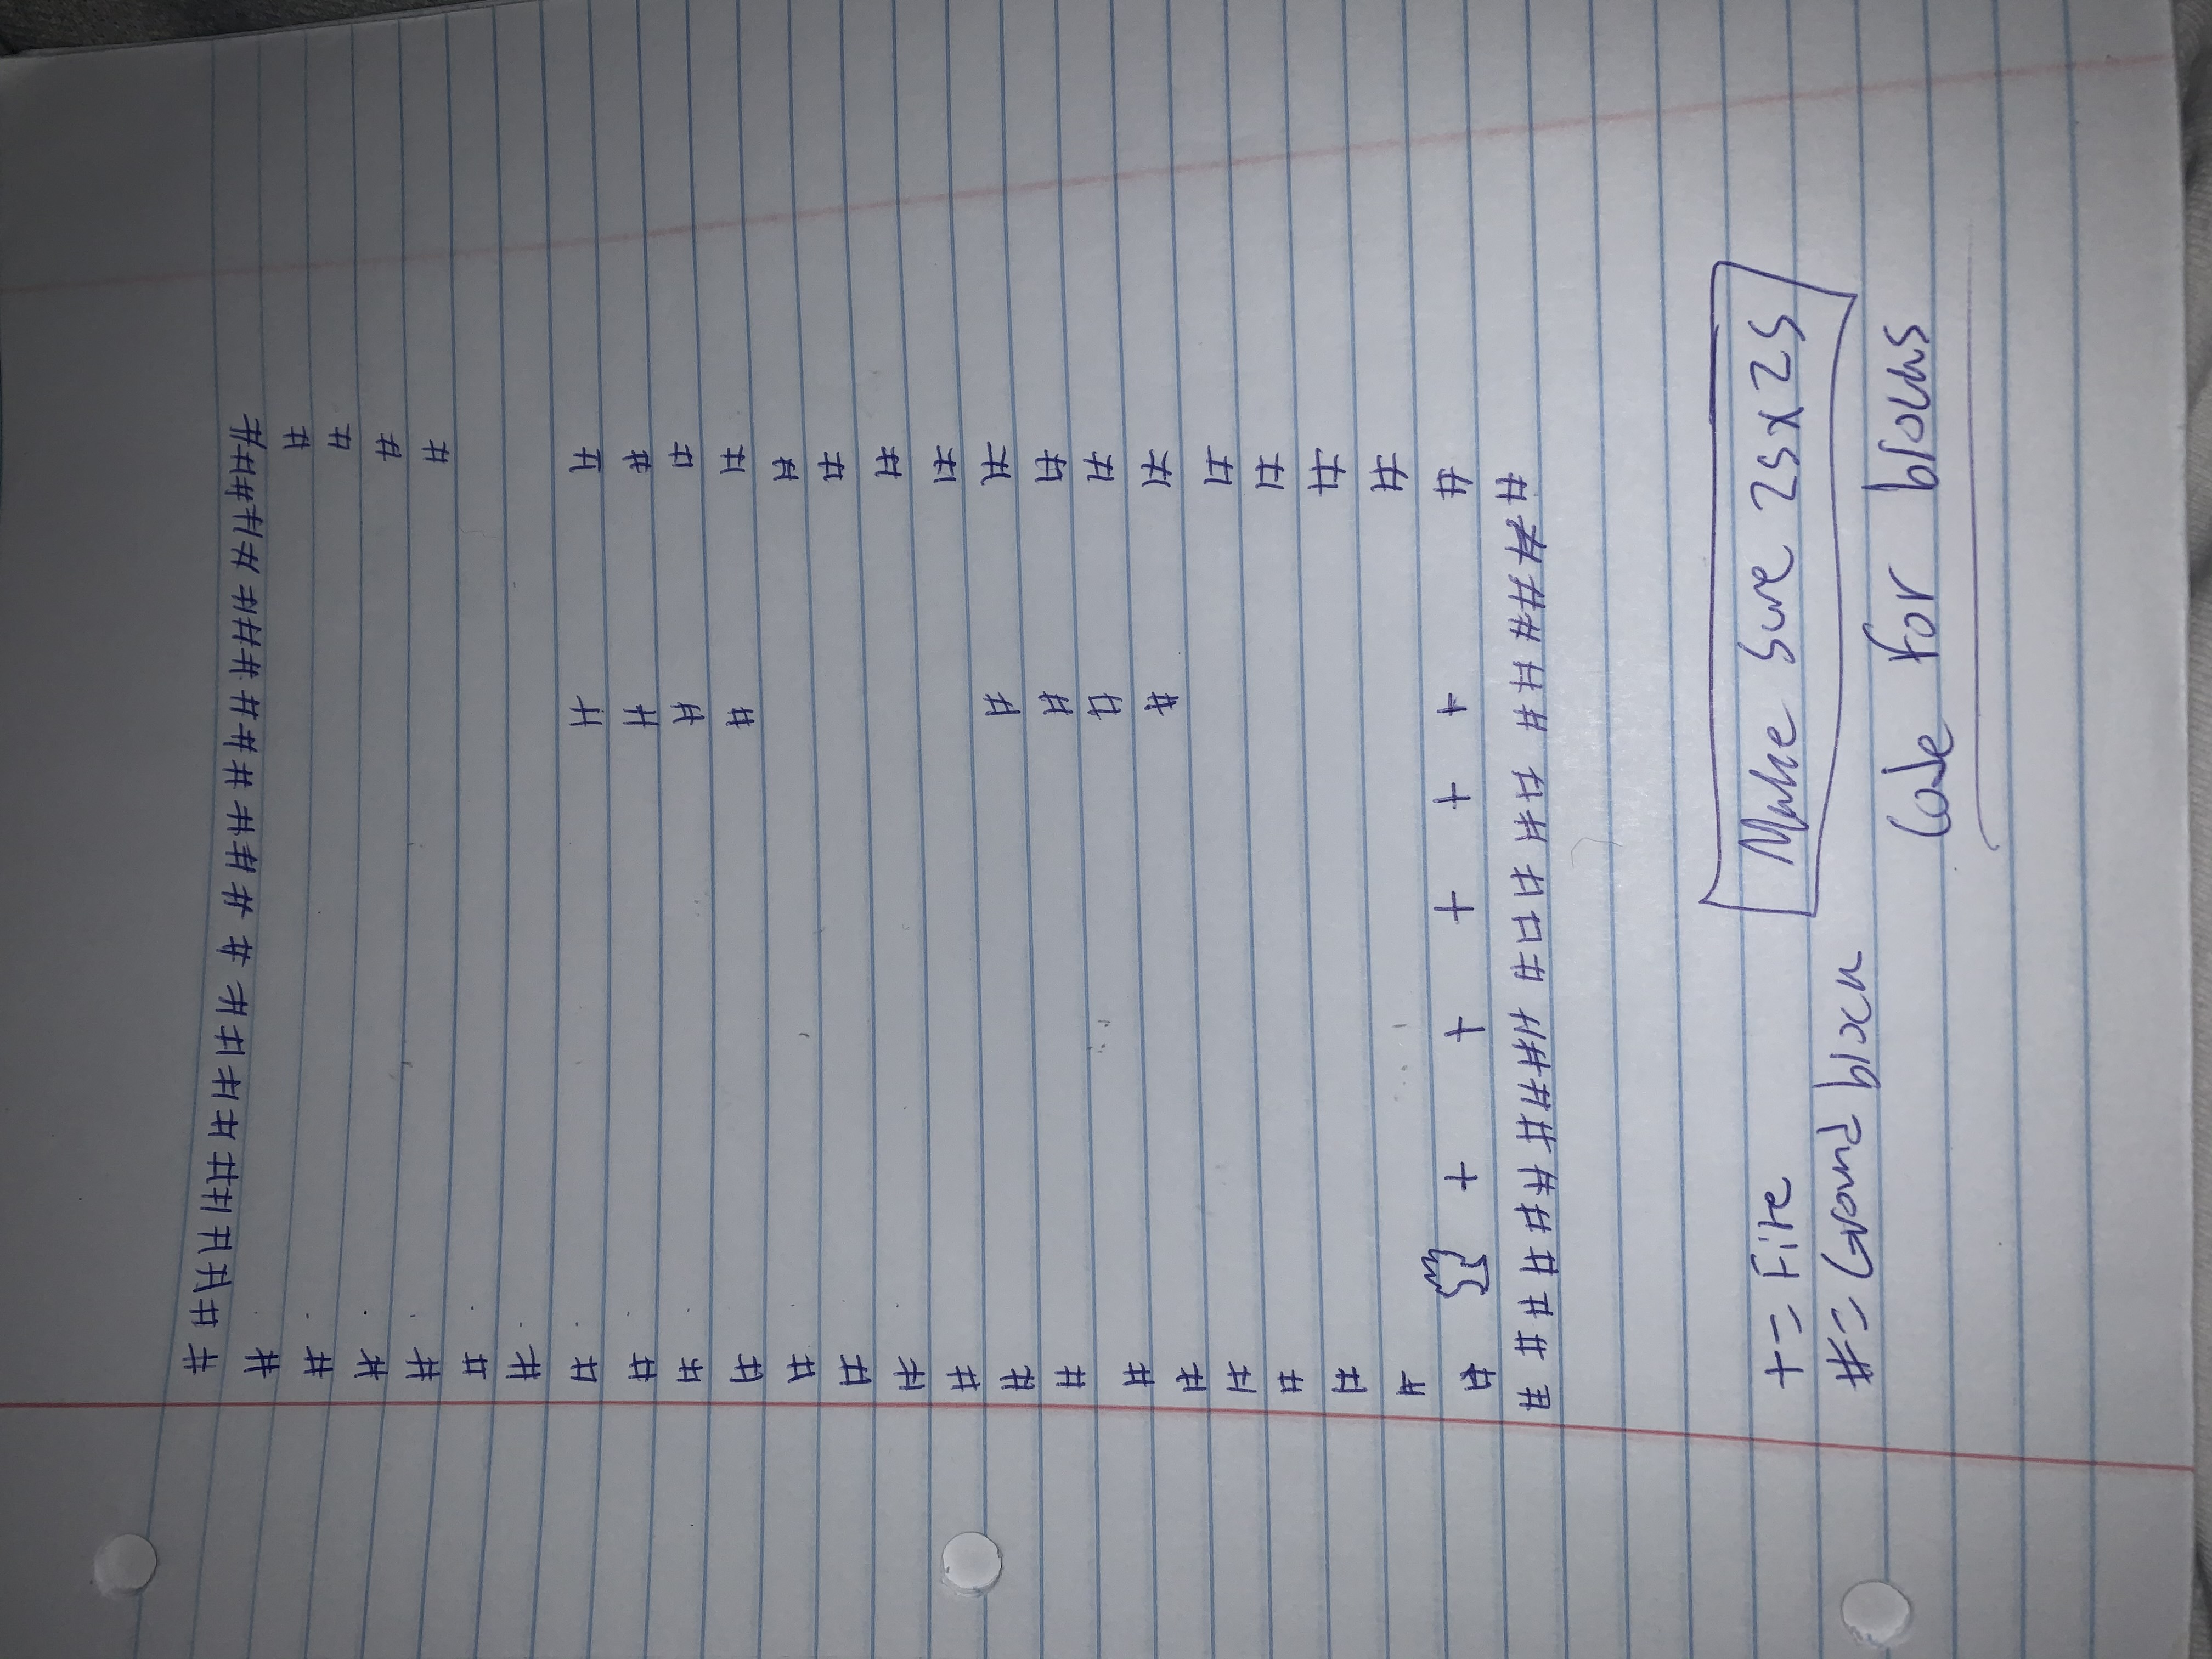 # # # # # # # # # # # # # # # # # # # # # # # # # #
# #
# #
# #
# #
#
#
# # #
# # #
# # #
# # #
# #
# #
# #
# #
# # #
# # #
# # #
# # #
# #
# #
# #
# #
# + + + + + #
# # # # # # # # # # # # # # # # # # # # #
+ = Fire
# = Ground block
Make Sure 25x25
Code For blocks